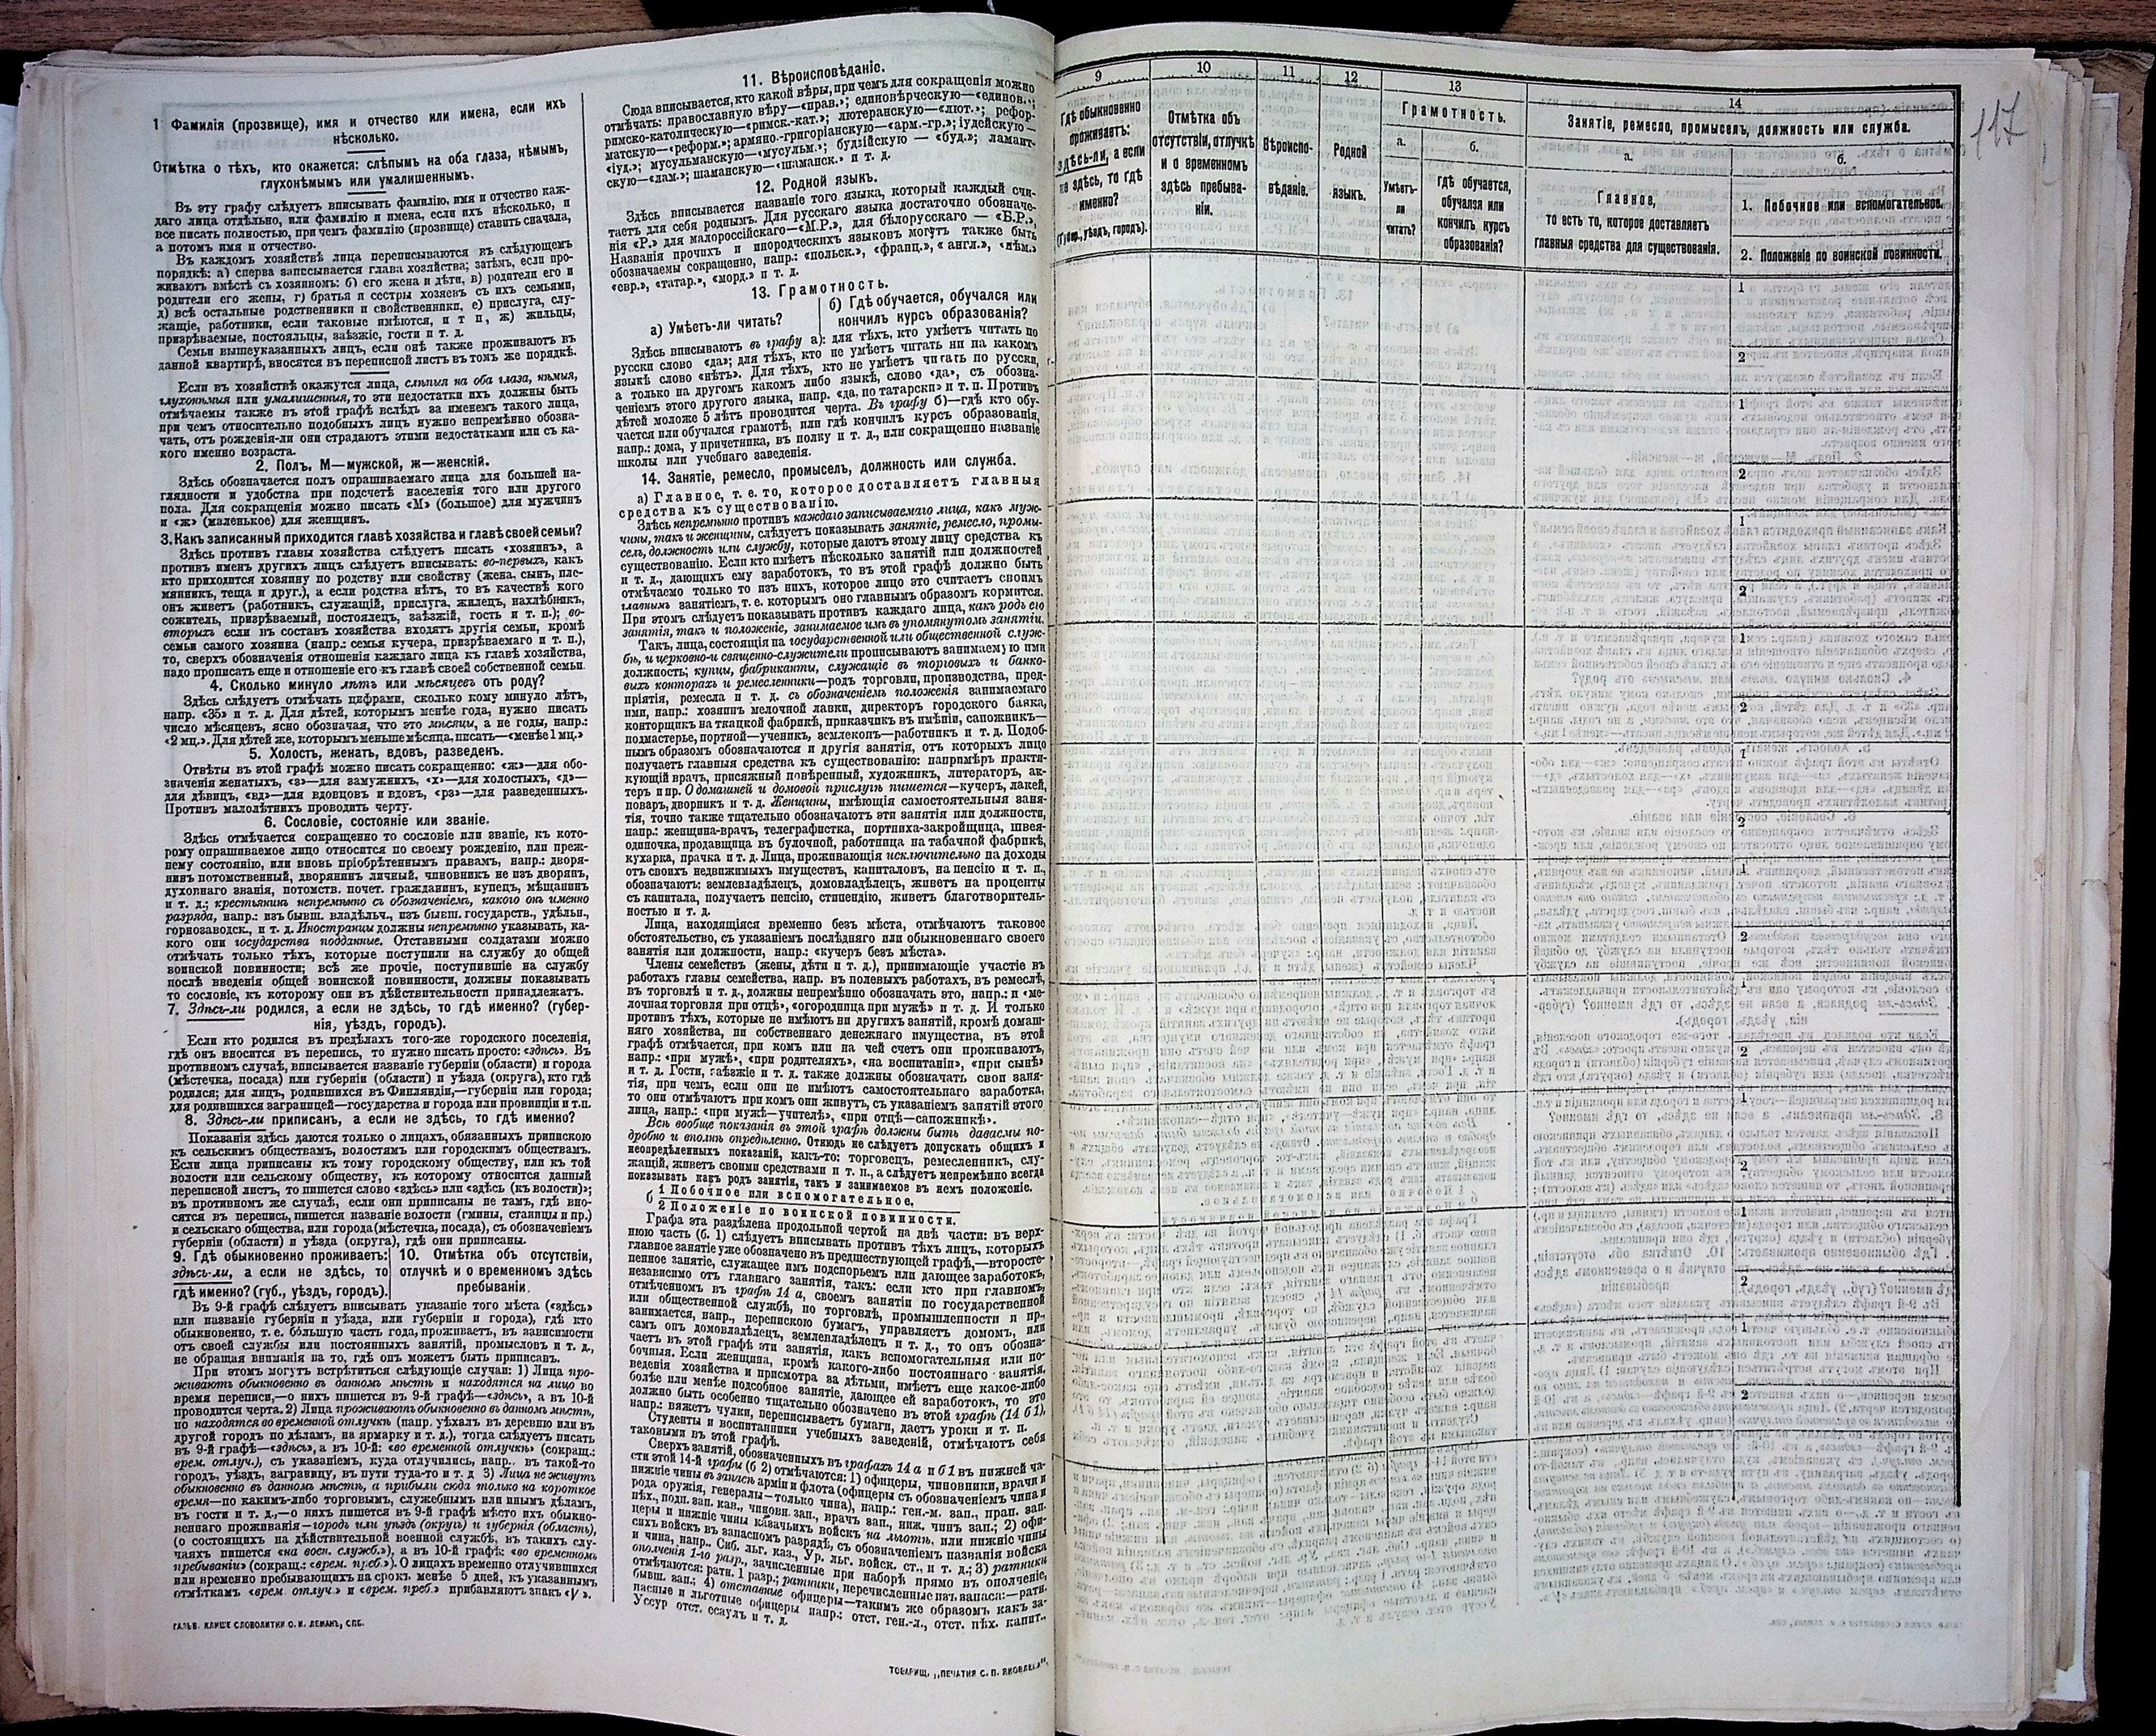 1 Фамилія (прозвище), имя и отчество или имена, если ихъ
нѣсколько.
Отмѣтка о тѣхъ, кто окажется: слѣпымъ на оба глаза, нѣмымъ,
глухонѣмымъ или умалишеннымъ.
Въ эту графу слѣдуетъ вписывать фамилію, имя и отчество каж-
даго лица отдѣльно, или фамилію и имена, если ихъ нѣсколько, и
все писать полностью, при чемъ фамилію (прозвище) ставить сначала,
а потомъ имя и отчество.
Въ каждомъ хозяйствѣ лица переписываются въ слѣдующемъ
порядкѣ: а) сперва записывается глава хозяйства; затѣмъ, если про-
живаютъ вмѣстѣ съ хозяиномъ: б) его жена и дѣти, в) родители его и
родители его жены, г) братья и сестры хозяевъ съ ихъ семьями,
д) всѣ остальные родственники и свойственники, е) прислуга, слу-
жащіе, работники, если таковые имѣются, и т п, ж) жильцы,
призрѣваемые, постояльцы, заѣзжіе, гости и т. д.
Семьи вышеуказанныхъ лицъ, если онѣ также проживаютъ въ
данной квартирѣ, вносятся въ переписной листъ въ томъ же порядкѣ.
Если въ хозяйствѣ окажутся лица, слѣпыя на оба глаза, нѣмыя,
глухонѣмыя или умалишенныя, то эти недостатки ихъ должны быть
отмѣчаемы также въ этой графѣ вслѣдъ за именемъ такого лица,
при чемъ относительно подобныхъ лицъ нужно непремѣнно обозна-
чать, отъ рожденія-ли они страдаютъ этими недостатками или съ ка-
кого именно возраста.
2. Полъ. М—мужской, ж—женскій.
Здѣсь обозначается полъ опрашиваемаго лица для большей на-
глядности и удобства при подсчетѣ населенія того или другого
пола. Для сокращенія можно писать «М» (большое) для мужчинъ
и «ж» (маленькое) для женщинъ.
3. Какъ записанный приходится главѣ хозяйства и главѣ своей семьи?
Здѣсь противъ главы хозяйства слѣдуетъ писать «хозяинъ», а
противъ именъ другихъ лицъ слѣдуетъ вписывать: во-первыхъ, какъ
кто приходится хозяину по родству или свойству (жена, сынъ, пле-
мянникъ, теща и друг.), а если родства нѣтъ, то въ качествѣ кого
онъ живетъ (работникъ, служащій, прислуга, жилецъ, нахлѣбникъ,
сожитель, призрѣваемый, постоялецъ, заѣзжій, гость и т. п.); во-
вторыхъ если въ составъ хозяйства входятъ другія семьи, кромѣ
семьи самого хозяина (напр.: семья кучера, призрѣваемаго и т. п.),
то, сверхъ обозначенія отношенія каждаго лица къ главѣ хозяйства,
надо прописать еще и отношеніе его къ главѣ своей собственной семьи.
4. Сколько минуло лѣтъ или мѣсяцевъ отъ роду?
Здѣсь слѣдуетъ отмѣчать цифрами, сколько кому минуло лѣтъ,
напр. «35» и т. д. Для дѣтей, которымъ менѣе года, нужно писать
число мѣсяцевъ, ясно обозначая, что это мѣсяцы, а не годы, напр.:
«2 мц.». Для дѣтей же, которымъ меньше мѣсяца, писать—«менѣе 1 мц.»
5. Холостъ, женатъ, вдовъ, разведенъ.
Отвѣты въ этой графѣ можно писать сокращенно: «ж»—для обо-
значенія женатыхъ, «з»—для замужнихъ, «х»—для холостыхъ, «д»—
для дѣвицъ, «вд»—для вдовцовъ и вдовъ, «рз»—для разведенныхъ.
Противъ малолѣтнихъ проводить черту.
6. Сословіе, состояніе или званіе.
Здѣсь отмѣчается сокращенно то сословіе или званіе, къ кото-
рому опрашиваемое лицо относится по своему рожденію, или преж-
нему состоянію, или вновь пріобрѣтеннымъ правамъ, напр.: дворя-
нинъ потомственный, дворянинъ личный, чиновникъ не изъ дворянъ,
духовнаго званія, потомств. почет. гражданинъ, купецъ, мѣщанинъ
и т. д.; крестьянинъ непремѣнно съ обозначеніемъ, какого онъ именно
разряда, напр.: изъ бывш. владѣльч., изъ бывш. государств., удѣльн.,
горнозаводск., и т. д. Иностранцы должны непремѣнно указывать, ка-
кого они государства подданные. Отставными солдатами можно
отмѣчать только тѣхъ, которые поступили на службу до общей
воинской повинности; всѣ же прочіе, поступившіе на службу
послѣ введенія общей воинской повинности, должны показывать
то сословіе, къ которому они въ дѣйствительности принадлежатъ.
7. Здѣсь-ли родился, а если не здѣсь, то гдѣ именно? (губер-
нія, уѣздъ, городъ).
Если кто родился въ предѣлахъ того-же городского поселенія,
гдѣ онъ вносится въ перепись, то нужно писать просто: «здѣсь». Въ
противномъ случаѣ, вписывается названіе губерніи (области) и города
(мѣстечка, посада) или губерніи (области) и уѣзда (округа), кто гдѣ
родился; для лицъ, родившихся въ Финляндіи,—губернія или города;
для родившихся заграницей—государства и города или провинціи и т.п.
8. Здѣсь-ли приписанъ, а если не здѣсь, то гдѣ именно?
Показанія здѣсь даются только о лицахъ, обязанныхъ припискою
къ сельскимъ обществамъ, волостямъ или городскимъ обществамъ.
Если лица приписаны къ тому городскому обществу, или къ той
волости или сельскому обществу, къ которому относится данный
переписной листъ, то пишется слово «здѣсь» или «здѣсь (къ волости)»;
въ противномъ же случаѣ, если они приписаны не тамъ, гдѣ вно-
сятся въ перепись, пишется названіе волости (гмины, станицы и пр.)
и сельскаго общества, или города (мѣстечка, посада), съ обозначеніемъ
губерніи (области) и уѣзда (округа), гдѣ они приписаны.
9. Гдѣ обыкновенно проживаетъ:
здѣсь-ли, а если не здѣсь, то
гдѣ именно? (губ., уѣздъ, городъ).
10. Отмѣтка объ отсутствіи,
отлучкѣ и о временномъ здѣсь
пребываніи.
Въ 9-й графѣ слѣдуетъ вписывать указаніе того мѣста («здѣсь»
или названіе губерніи и уѣзда, или губерніи и города), гдѣ кто
обыкновенно, т. е. бо́льшую часть года, проживаетъ, въ зависимости
отъ своей службы или постоянныхъ занятій, промысловъ и т. д.,
не обращая вниманія на то, гдѣ онъ можетъ быть приписанъ.
При этомъ могутъ встрѣтиться слѣдующіе случаи: 1) Лица про-
живаютъ обыкновенно въ данномъ мѣстѣ и находятся на лицо во
время переписи,—о нихъ пишется въ 9-й графѣ—«здѣсь», а въ 10-й
проводится черта. 2) Лица проживаютъ обыкновенно въ данномъ мѣстѣ,
но находятся во временной отлучкѣ (напр. уѣхалъ въ деревню или въ
другой городъ по дѣламъ, на ярмарку и т. д.), тогда слѣдуетъ писать
въ 9-й графѣ—«здѣсь», а въ 10-й: «во временной отлучкѣ» (сокращ.:
врем. отлуч.), съ указаніемъ, куда отлучились, напр.. въ такой-то
городъ, уѣздъ, заграницу, въ пути туда-то и т. д 3) Лица не живутъ
обыкновенно въ данномъ мѣстѣ, а прибыли сюда только на короткое
время—по какимъ-либо торговымъ, служебнымъ или инымъ дѣламъ,
въ гости и т. д.,—о нихъ пишется въ 9-й графѣ мѣсто ихъ обыкно-
веннаго проживанія—городъ или уѣздъ (округъ) и губернія (область),
(о состоящихъ на дѣйствительной военной службѣ, въ такихъ слу-
чаяхъ пишется «на воен. служб.»), а въ 10-й графѣ: «во временномъ
пребываніи» (сокращ.: «врем. преб.»). О лицахъ временно отлучившихся
или временно пребывающихъ на срокъ менѣе 5 дней, къ указаннымъ
отмѣткамъ «врем. отлуч.» и «врем. преб.» прибавляютъ знакъ «V».
ГАЛЬВ. КЛИШЕ СЛОВОЛИТНИ О. И. ЛЕМАНЪ, СПБ.
11. Вѣроисповѣданіе.
Сюда вписывается, кто какой вѣры, при чемъ для сокращенія можно
отмѣчать: православную вѣру—«прав.»; единовѣрческую—«единов.»;
римско-католическую—«римск.-кат.»; лютеранскую—«лют.»; рефор-
матскую—«реформ.»; армяно-григоріанскую—«арм.-гр.»; іудейскую—
«іуд.»; мусульманскую—«мусульм.»; буддійскую — «буд.»; ламаит-
скую—«лам.»; шаманскую—«шаманск.» и т. д.
12. Родной языкъ.
Здѣсь вписывается названіе того языка, который каждый счи-
таетъ для себя роднымъ. Для русскаго языка достаточно обозначе-
нія «Р.» для малороссійскаго—«М.Р.», для бѣлорусскаго — «Б.Р.»,
Названія прочихъ и инородческихъ языковъ могутъ также быть
обозначаемы сокращенно, напр.: «польск.», «франц.», « англ.», «нѣм.»
«евр.», «татар.», «морд.» и т. д.
13. Грамотность.
а) Умѣетъ-ли читать?
б) Гдѣ обучается, обучался или
кончилъ курсъ образованія?
Здѣсь вписываютъ въ графу а): для тѣхъ, кто умѣетъ читать по
русски слово «да»; для тѣхъ, кто не умѣетъ читать ни на какомъ
языкѣ слово «нѣтъ». Для тѣхъ, кто не умѣетъ читать по русски,
а только на другомъ какомъ либо языкѣ, слово «да», съ обозна-
ченіемъ этого другого языка, напр. «да, по татарски» и т. п. Противъ
дѣтей моложе 5 лѣтъ проводится черта. Въ графу б)—гдѣ кто обу-
чается или обучался грамотѣ, или гдѣ кончилъ курсъ образованія,
напр.: дома, у причетника, въ полку и т. д., или сокращенно названіе
школы или учебнаго заведенія.
14. Занятіе, ремесло, промыселъ, должность или служба.
а) Главное, т. е. то, которое доставляетъ главныя
средства къ существованію.
Здѣсь непремѣнно противъ каждаго записываемаго лица, какъ муж-
чины, такъ и женщины, слѣдуетъ показывать занятіе, ремесло, промы-
селъ, должность или службу, которые даютъ этому лицу средства къ
существованію. Если кто имѣетъ нѣсколько занятій или должностей
и т. д., дающихъ ему заработокъ, то въ этой графѣ должно быть
отмѣчаемо только то изъ нихъ, которое лицо это считаетъ своимъ
главнымъ занятіемъ, т. е. которымъ оно главнымъ образомъ кормится.
При этомъ слѣдуетъ показывать противъ каждаго лица, какъ родъ его
занятія, такъ и положеніе, занимаемое имъ въ упомянутомъ занятіи.
Такъ, лица, состоящія на государственной или общественной служ-
бѣ, и церковно-и священно-служители прописываютъ занимаемую ими
должность; купцы, фабриканты, служащіе въ торговыхъ и банко-
выхъ конторахъ и ремесленники—родъ торговли, производства, пред-
пріятія, ремесла и т. д. съ обозначеніемъ положенія занимаемаго
ими, напр.: хозяинъ мелочной лавки, директоръ городского банка,
конторщикъ на ткацкой фабрикѣ, приказчикъ въ имѣніи, сапожникъ—
подмастерье, портной—ученикъ, землекопъ—работникъ и т. д. Подоб-
нымъ образомъ обозначаются и другія занятія, отъ которыхъ лицо
получаетъ главныя средства къ существованію: напримѣръ практи-
кующій врачъ, присяжный повѣренный, художникъ, литераторъ, ак-
теръ и пр. О домашней и домовой прислугѣ пишется—кучеръ, лакей,
поваръ, дворникъ и т. д. Женщины, имѣющія самостоятельныя заня-
тія, точно также тщательно обозначаютъ эти занятія или должности,
напр.: женщина-врачъ, телеграфистка, портниха-закройщица, швея-
одиночка, продавщица въ булочной, работница на табачной фабрикѣ,
кухарка, прачка и т. д. Лица, проживающія исключительно на доходы
отъ своихъ недвижимыхъ имуществъ, капиталовъ, на пенсію и т. п.,
обозначаютъ: землевладѣлецъ, домовладѣлецъ, живетъ на проценты
съ капитала, получаетъ пенсію, стипендію, живетъ благотворитель-
ностью и т. д.
Лица, находящіяся временно безъ мѣста, отмѣчаютъ таковое
обстоятельство, съ указаніемъ послѣдняго или обыкновеннаго своего
занятія или должности, напр.: «кучеръ безъ мѣста».
Члены семействъ (жены, дѣти и т. д.), принимающіе участіе въ
работахъ главы семейства, напр. въ полевыхъ работахъ, въ ремеслѣ,
въ торговлѣ и т. д., должны непремѣнно обозначать это, напр.: и «ме-
лочная торговля при отцѣ», «огородница при мужѣ» и т. д. И только
противъ тѣхъ, которые не имѣютъ ни другихъ занятій, кромѣ домаш-
няго хозяйства, ни собственнаго денежнаго имущества, въ этой
графѣ отмѣчается, при комъ или на чей счетъ они проживаютъ,
напр.: «при мужѣ», «при родителяхъ», «на воспитаніи», «при сынѣ»
и т. д. Гости, заѣзжіе и т. д. также должны обозначать свои заня-
тія, при чемъ, если они не имѣютъ самостоятельнаго заработка,
то они отмѣчаютъ при комъ они живутъ, съ указаніемъ занятій этого
лица, напр.: «при мужѣ—учителѣ», «при отцѣ—сапожникѣ».
Всѣ вообще показанія въ этой графѣ должны быть даваемы по-
дробно и вполнѣ опредѣленно. Отнюдь не слѣдуетъ допускать общихъ и
неопредѣленныхъ показаній, какъ-то: торговецъ, ремесленникъ, слу-
жащій, живетъ своими средствами и т. п., а слѣдуетъ непремѣнно всегда
показывать какъ родъ занятія, такъ и занимаемое въ немъ положеніе.
б 1 Побочное или вспомогательное.
2 Положеніе по воинской повинности.
Графа эта раздѣлена продольной чертой на двѣ части: въ верх-
нюю часть (б. 1) слѣдуетъ вписывать противъ тѣхъ лицъ, которыхъ
главное занятіе уже обозначено въ предшествующей графѣ,—второсте-
пенное занятіе, служащее имъ подспорьемъ или дающее заработокъ,
независимо отъ главнаго занятія, такъ: если кто при главномъ,
отмѣченномъ въ графѣ 14 а, своемъ занятіи по государственной
или общественной службѣ, по торговлѣ, промышленности и пр.,
занимается, напр., перепискою бумагъ, управляетъ домомъ, или
самъ онъ домовладѣлецъ, землевладѣлецъ и т. д., то онъ обозна-
чаетъ въ этой графѣ эти занятія, какъ вспомогательныя или по-
бочныя. Если женщина, кромѣ какого-либо постояннаго занятія,
веденія хозяйства и присмотра за дѣтьми, имѣетъ еще какое-либо
болѣе или менѣе подсобное занятіе, дающее ей заработокъ, то это
должно быть особенно тщательно обозначено въ этой графѣ (14 б 1),
напр.: вяжетъ чулки, переписываетъ бумаги, даетъ уроки и т. п.
Студенты и воспитанники учебныхъ заведеній, отмѣчаютъ себя
таковыми въ этой графѣ.
Сверхъ занятій, обозначенныхъ въ графахъ 14 а и б 1 въ нижней ча-
сти этой 14-й графы (б 2) отмѣчаются: 1) офицеры, чиновники, врачи и
нижніе чины въ запасѣ арміи и флота (офицеры съ обозначеніемъ чина и
рода оружія, генералы—только чина), напр.: ген.-м. зап., прап. зап.
пѣх., подп. зап. кав., чиновн. зап., врачъ зап., ниж. чинъ зап.; 2) офи-
церы и нижніе чины казачьихъ войскъ на льготѣ, или нижніе чины
сихъ войскъ въ запасномъ разрядѣ, съ обозначеніемъ названія войска
и чина, напр.. Сиб. льг. каз., Ур. льг. войск. ст., и т. д.; 3) ратники
ополченія 1-го разр., зачисленные при наборѣ прямо въ ополченіе,
отмѣчаются: ратн. 1 разр.; ратники, перечисленные изъ запаса:—ратн.
бывш. зап.; 4) отставные офицеры—такимъ же образомъ какъ за-
пасные и льготные офицеры напр.: отст. ген.-л., отст. пѣх. капит.,
Уссур отст. есаулъ и т. д.
ТОВАРИЩ. „ПЕЧАТНЯ С. П. ЯКОВЛЕВА“.
9
Гдѣ обыкновенно
проживаетъ:
здѣсь-ли, а если
не здѣсь, то гдѣ
именно?
(Губер., уѣздъ, городъ).
10
Отмѣтка объ
отсутствіи, отлучкѣ
и о временномъ
здѣсь пребыва-
ніи.
11
Вѣроиспо-
вѣданіе.
12
Родной
языкъ.
13
Грамотность.
а.
Умѣетъ-
ли
читать?
б.
гдѣ обучается,
обучался или
кончилъ курсъ
образованія?
14
Занятіе, ремесло, промыселъ, должность или служба.
а.
Главное,
то есть то, которое доставляетъ
главныя средства для существованія.
б.
1. Побочное или вспомогательное.
2. Положеніе по воинской повинности.
1
2
1
2
1
2
1
2
1
2
1
2
1
2
1
2
1
2
1
2
117